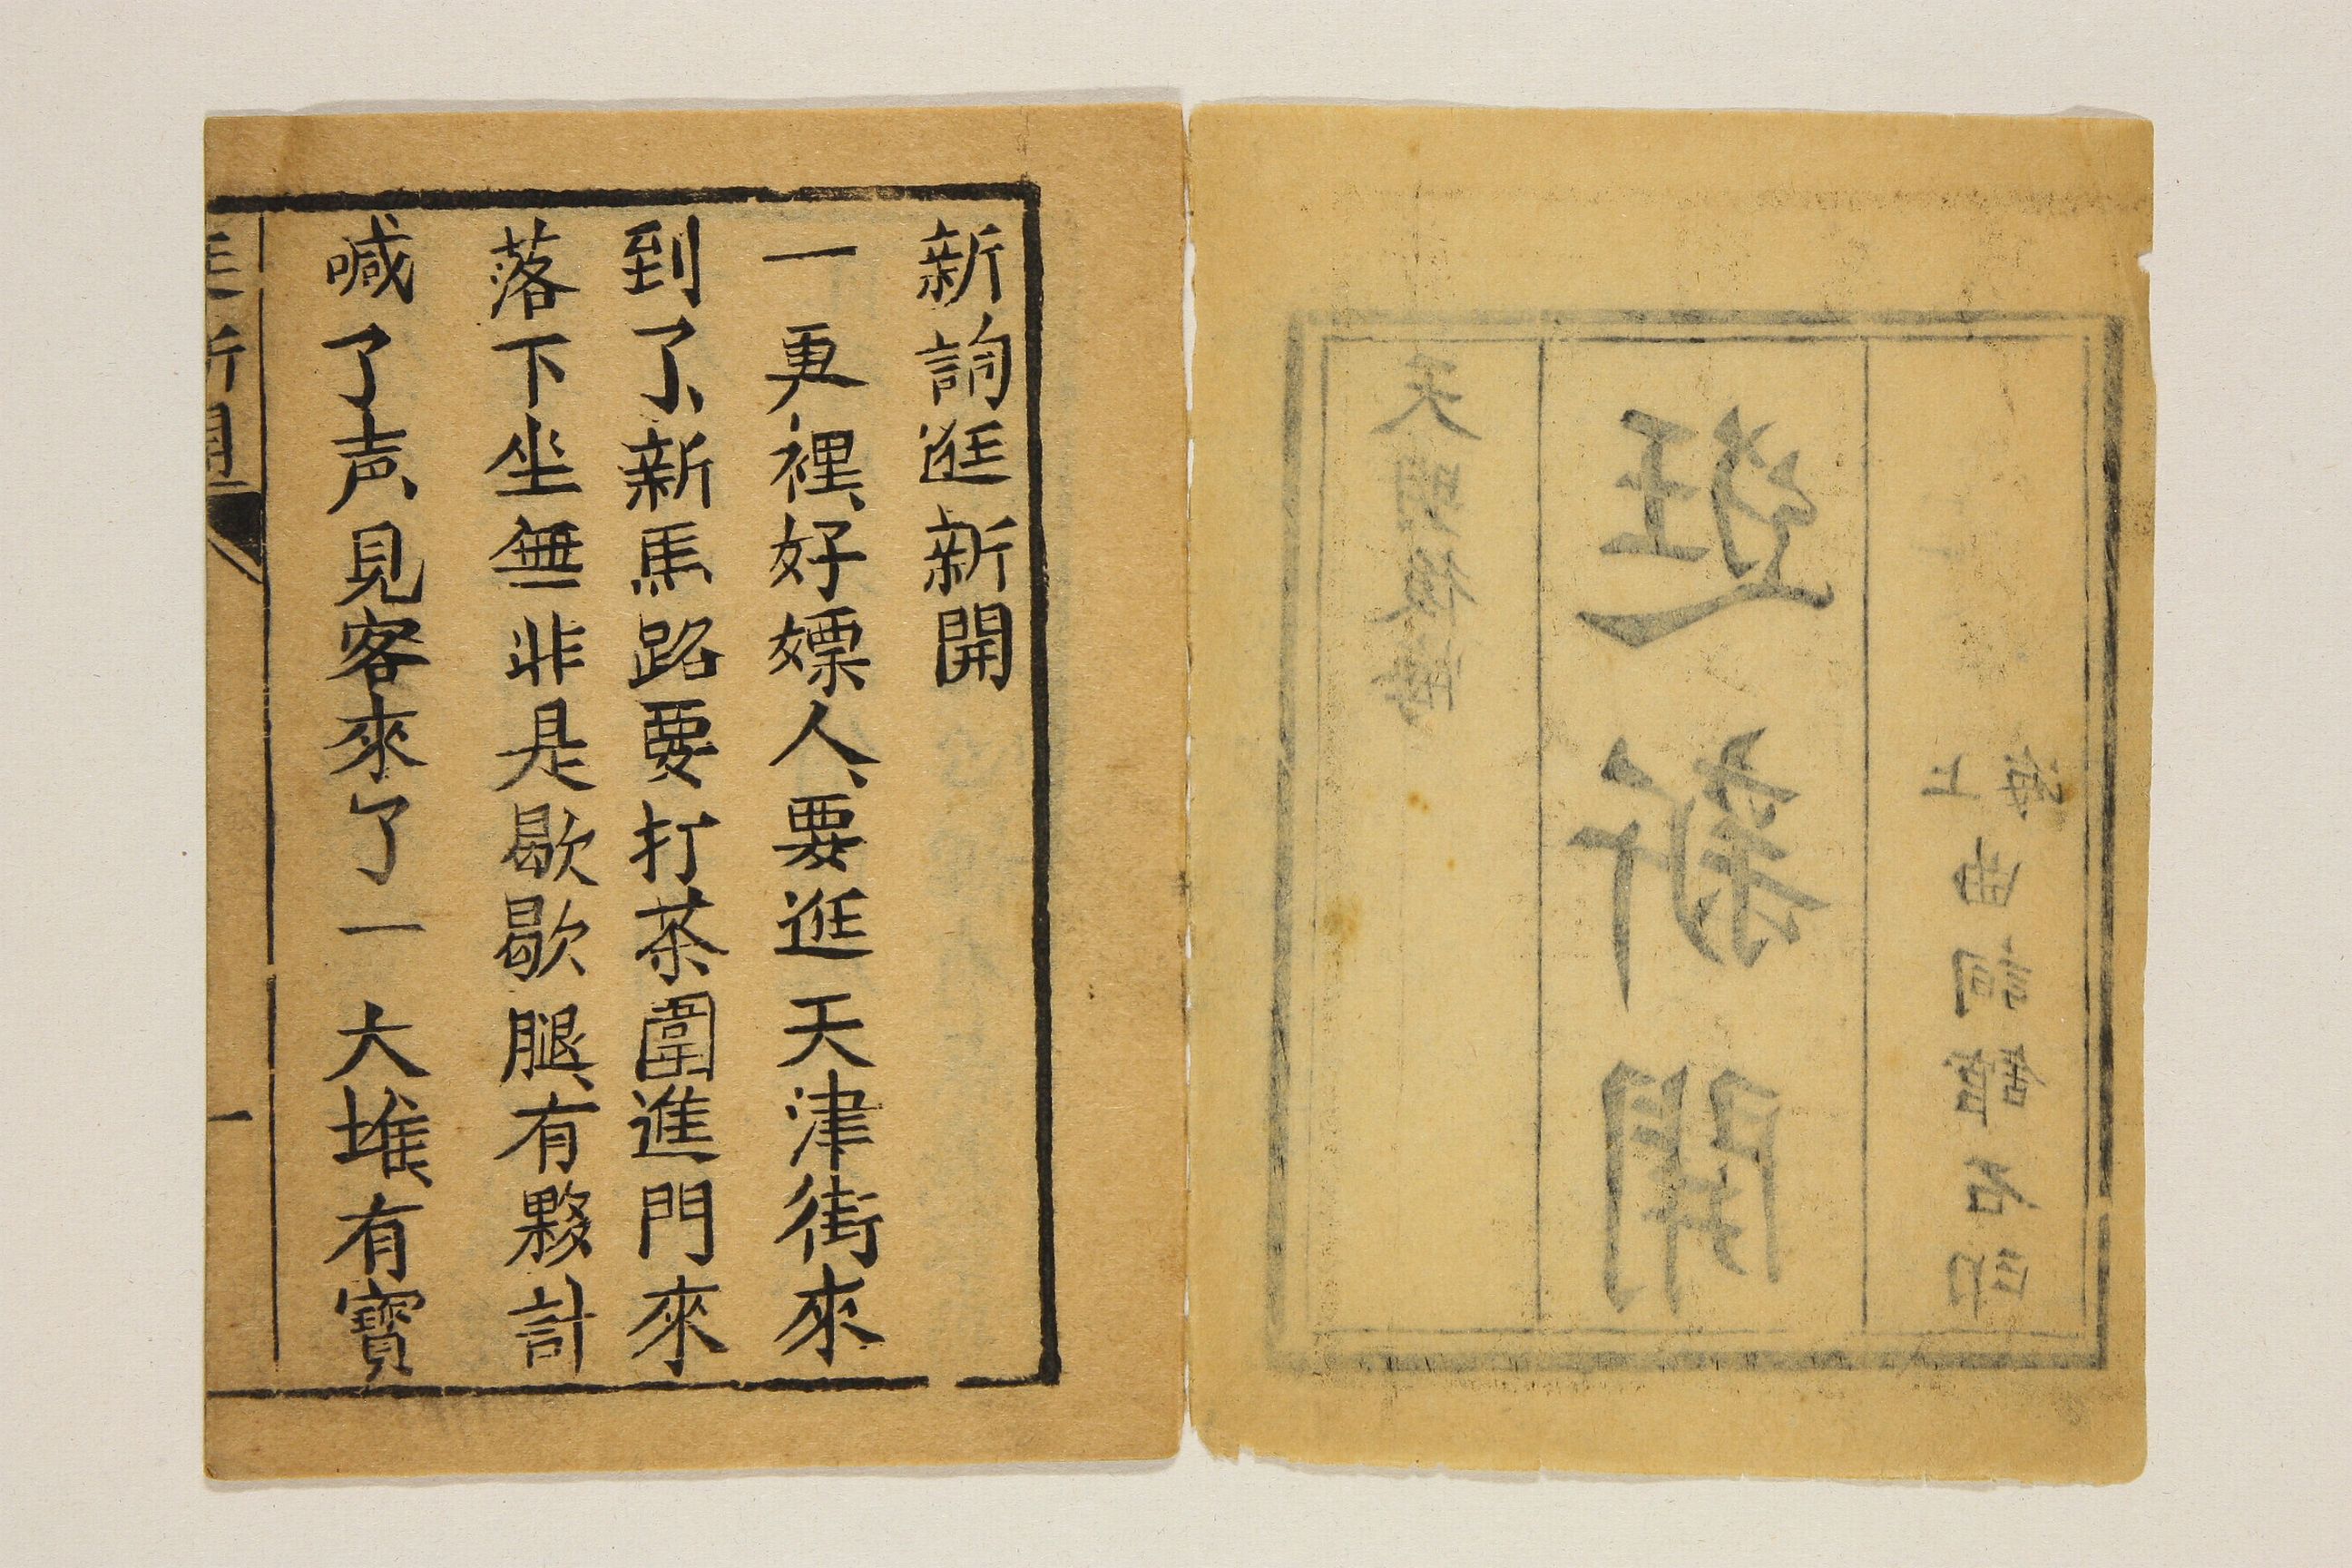 海上曲詞舘石印
逛新開
天明
新詞逛新開
一更裡、好嫖人、要逛天津街來
到了、新馬路要打茶圍進門來
落下坐無非是歇歇腿、有夥計
喊了声、見客來了一大堆有寶
逛新開 一